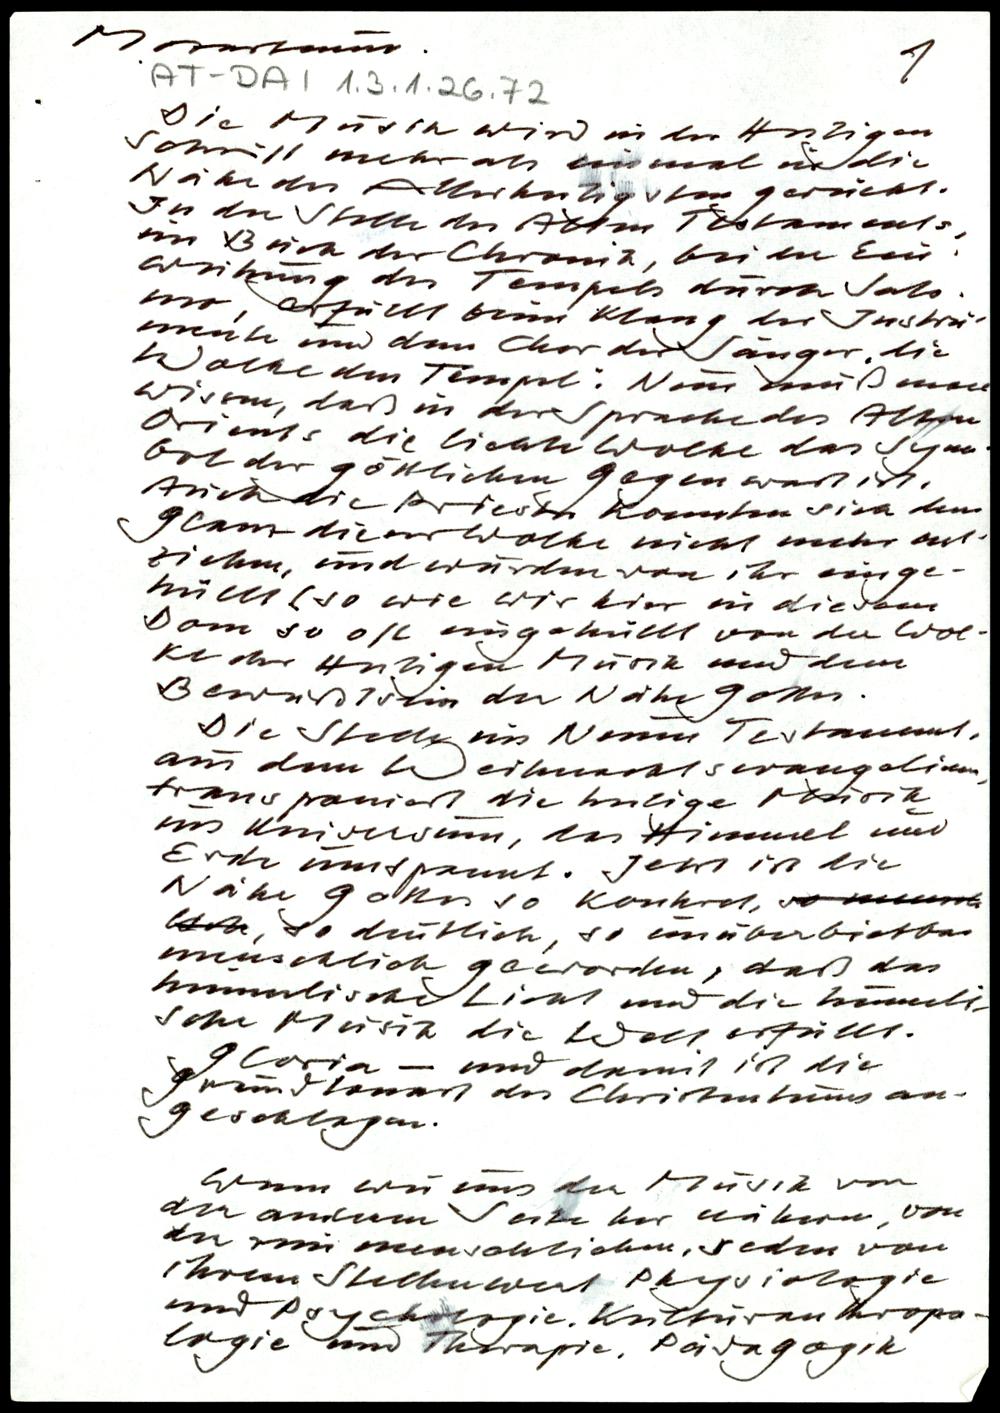 Mozarteum. 1
AT-DAI 1.3.1.26.72
Die Musik wird in der Heiligen
Schrift mehr als einmal in die
Nähe des Allerheiligsten gerückt.
In der Stelle des Alten Testaments,
im Buch der Chronik, bei der Ein-
weihung des Tempels durch Salo-
mo, erfüllt beim Klang der Instru-
mente und dem Chor der Sänger, die
Wolke den Tempel. Nun muß man
wissen, daß in der Sprache des Alten
Orients die lichte Wolke das Sym-
bol der göttlichen Gegenwart ist.
Auch die Priester konnten sich dem
Glanz dieser Wolke nicht mehr ent-
ziehen, und wurden von ihr einge-
hüllt (so wie wir hier in diesem
Dom so oft eingehüllt von der Wol-
ke der Heiligen Musik und dem
Bewußtsein der Nähe Gottes.
Die Stelle im Neuen Testament,
aus dem Weihnachtsevangelium,
transponiert die heilige Musik
ins Universum, das Himmel und
Erde umspannt. Jetzt ist die
Nähe Gottes so konkret,
so deutlich, so unüberbietbar
menschlich geworden, daß das
himmlische Licht und die himmli-
sche Musik die Welt erfüllt.
Gloria – und damit ist die
Grundtonart des Christentums an-
geschlagen.
Wenn wir uns der Musik von
der anderen Seite her nähern, von
der rein menschlichen, reden von
ihrem Stellenwert Physiologie
und Psychologie, Kulturanthropo-
logie und Therapie, Pädagogik